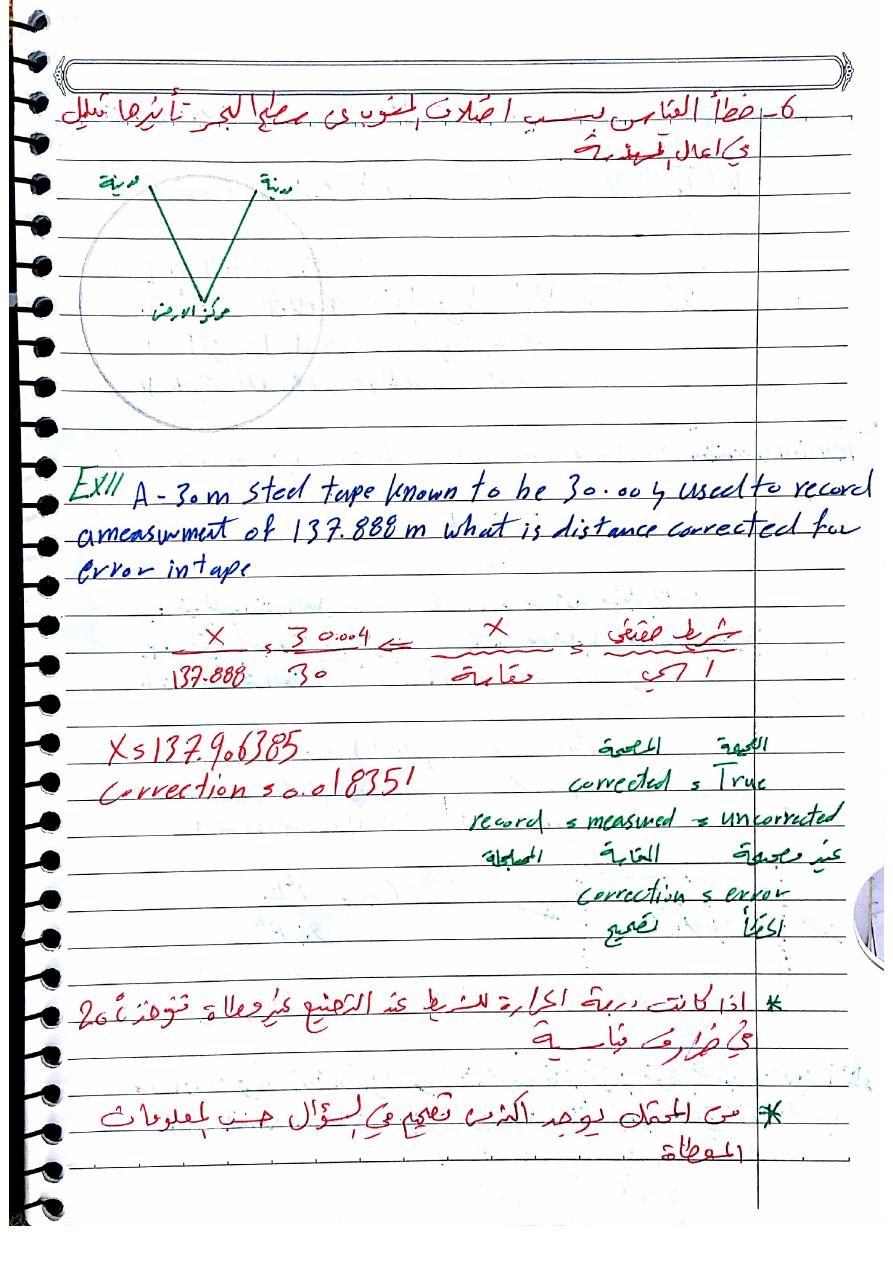 6- خطأ القياس بسبب اختلاف المنسوب عن سطح البحر تأثيرها قليل
في اعمال الهندسة
مدينة مدينة
مركز الارض
EX11 A-30m steel tape known to be 30.004 used to record
ameasurment of 137.888 m what is distance corrected for
error in tape
شريط حقيقي / اسمي = X / مقاسة ⇐ 30.004 / 30 = X / 137.888
X = 137.906385
الصحيحة المصححة
Correction = 0.018351
corrected = True
record = measured = uncorrected
غير مصححة المقاسة المسجلة
correction = error
الخطأ تصحيح
* اذا كانت درجة الحرارة للشريط عند التصنيع غير معطاة تؤخذ 20
في ظروف قياسية .
* من المحتمل يوجد اكثر من تصحيح في السؤال حسب المعلومات
المعطاة